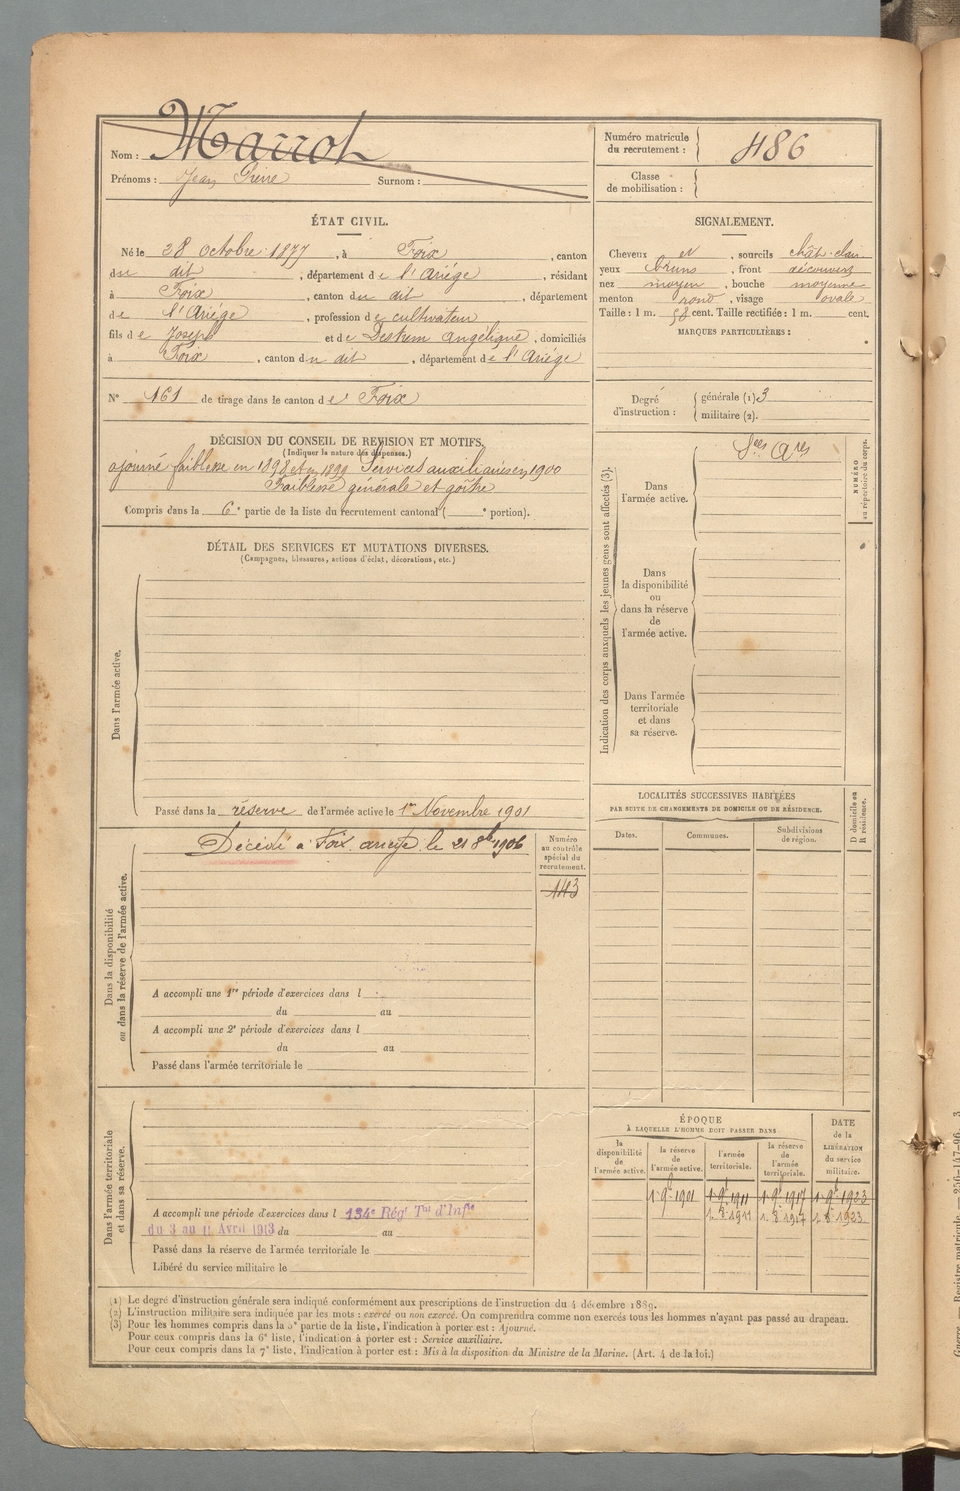 Nom : Marrot
Prénoms : Jean Pierre Surnom :
Numéro matricule du recrutement : 486
Classe de mobilisation :
ÉTAT CIVIL.
Né le 28 Octobre 1877, à Foix, canton
du dit, département de l'Ariège, résidant
à Foix, canton du dit, département
de l'Ariège, profession de cultivateur
fils de Joseph et de Destrem Angélique, domiciliés
à Foix, canton du dit, département de l'Ariège
SIGNALEMENT.
Cheveux et, sourcils chât. clair
yeux bruns, front découvert
nez moyen, bouche moyenne
menton rond, visage ovale
Taille : 1 m. 58 cent. Taille rectifiée : 1 m. cent.
MARQUES PARTICULIÈRES :
N° 161 de tirage dans le canton de Foix
Degré d'instruction : générale (1) 3
militaire (2).
DÉCISION DU CONSEIL DE REVISION ET MOTIFS.
(Indiquer la nature des dispenses.)
ajourné faiblesse en 1898 et en 1899 Services auxiliaires en 1900
Faiblesse générale et goître
Compris dans la 6e partie de la liste du recrutement cantonal ( e portion).
DÉTAIL DES SERVICES ET MUTATIONS DIVERSES.
(Campagnes, blessures, actions d'éclat, décorations, etc.)
Dans l'armée active.
Passé dans la réserve de l'armée active le 1er Novembre 1901
Indication des corps auxquels les jeunes gens sont affectés (3).
Dans l'armée active.
Sces Ares
NUMÉRO au répertoire du corps.
Dans la disponibilité ou dans la réserve de l'armée active.
Dans l'armée territoriale et dans sa réserve.
Dans la disponibilité ou dans la réserve de l'armée active.
Décédé à Foix, Ariège, le 21 8bre 1906
Numéro au contrôle spécial du recrutement.
143
A accompli une 1re période d'exercices dans l
du au
A accompli une 2e période d'exercices dans l
du au
Passé dans l'armée territoriale le
LOCALITÉS SUCCESSIVES HABITÉES
PAR SUITE DE CHANGEMENTS DE DOMICILE OU DE RÉSIDENCE.
Dates. Communes. Subdivisions de région. D domicile ou R résidence.
Dans l'armée territoriale et dans sa réserve.
A accompli une période d'exercices dans l 134e Régt Tal d'Infie
du 3 au 11 Avril 1913 du au
Passé dans la réserve de l'armée territoriale le
Libéré du service militaire le
ÉPOQUE
À LAQUELLE L'HOMME DOIT PASSER DANS
la disponibilité de l'armée active.
la réserve de l'armée active.
l'armée territoriale.
la réserve de l'armée territoriale.
DATE de la LIBÉRATION du service militaire.
1. 9b 1901 1. 9b 1911 1. 9b 1917 1. 9b 1923
1. 8 1911 1. 8 1917 1. 8 1923
(1) Le degré d'instruction générale sera indiqué conformément aux prescriptions de l'instruction du 4 décembre 1889.
(2) L'instruction militaire sera indiquée par les mots : exercé ou non exercé. On comprendra comme non exercés tous les hommes n'ayant pas passé au drapeau.
(3) Pour les hommes compris dans la 5e partie de la liste, l'indication à porter est : Ajourné.
Pour ceux compris dans la 6e liste, l'indication à porter est : Service auxiliaire.
Pour ceux compris dans la 7e liste, l'indication à porter est : Mis à la disposition du Ministre de la Marine. (Art. 4 de la loi.)
Guerre. — Registre matricule. — 256-147-96. 3